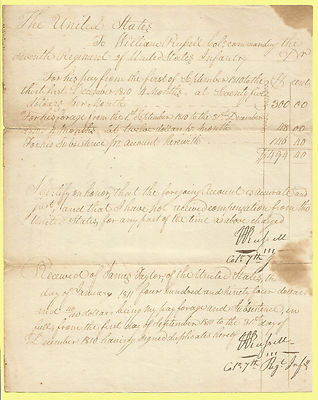 The United States
To William Russell Col. commanding the Dr
seventh Regiment of United States Infantry
For his pay from the first of September 1810 to the $ Cents
thirty first December 1810 4 months at Seventy five
dollars per Month 300 00
For his forage from the 1st September 1810 to the 31st December
1810 4 months at twelve dollars per month 48 00
For his Subsistence per account herewith
$494 40
I certify on honor, that the foregoing account is accurate and
just, and that I have not received compensation from the
United States, for any part of the time as above charged
W Russell
Col. 7th
Received of James Taylor of the United States, this
day of January 1811 four hundred and ninety four dollars
and
being my pay forage and Subsistence, in
full from the first day of September 1810 to the 31st day of
December 1810 having signed duplicates hereof
W Russell
Col. 7th Regt. Infy